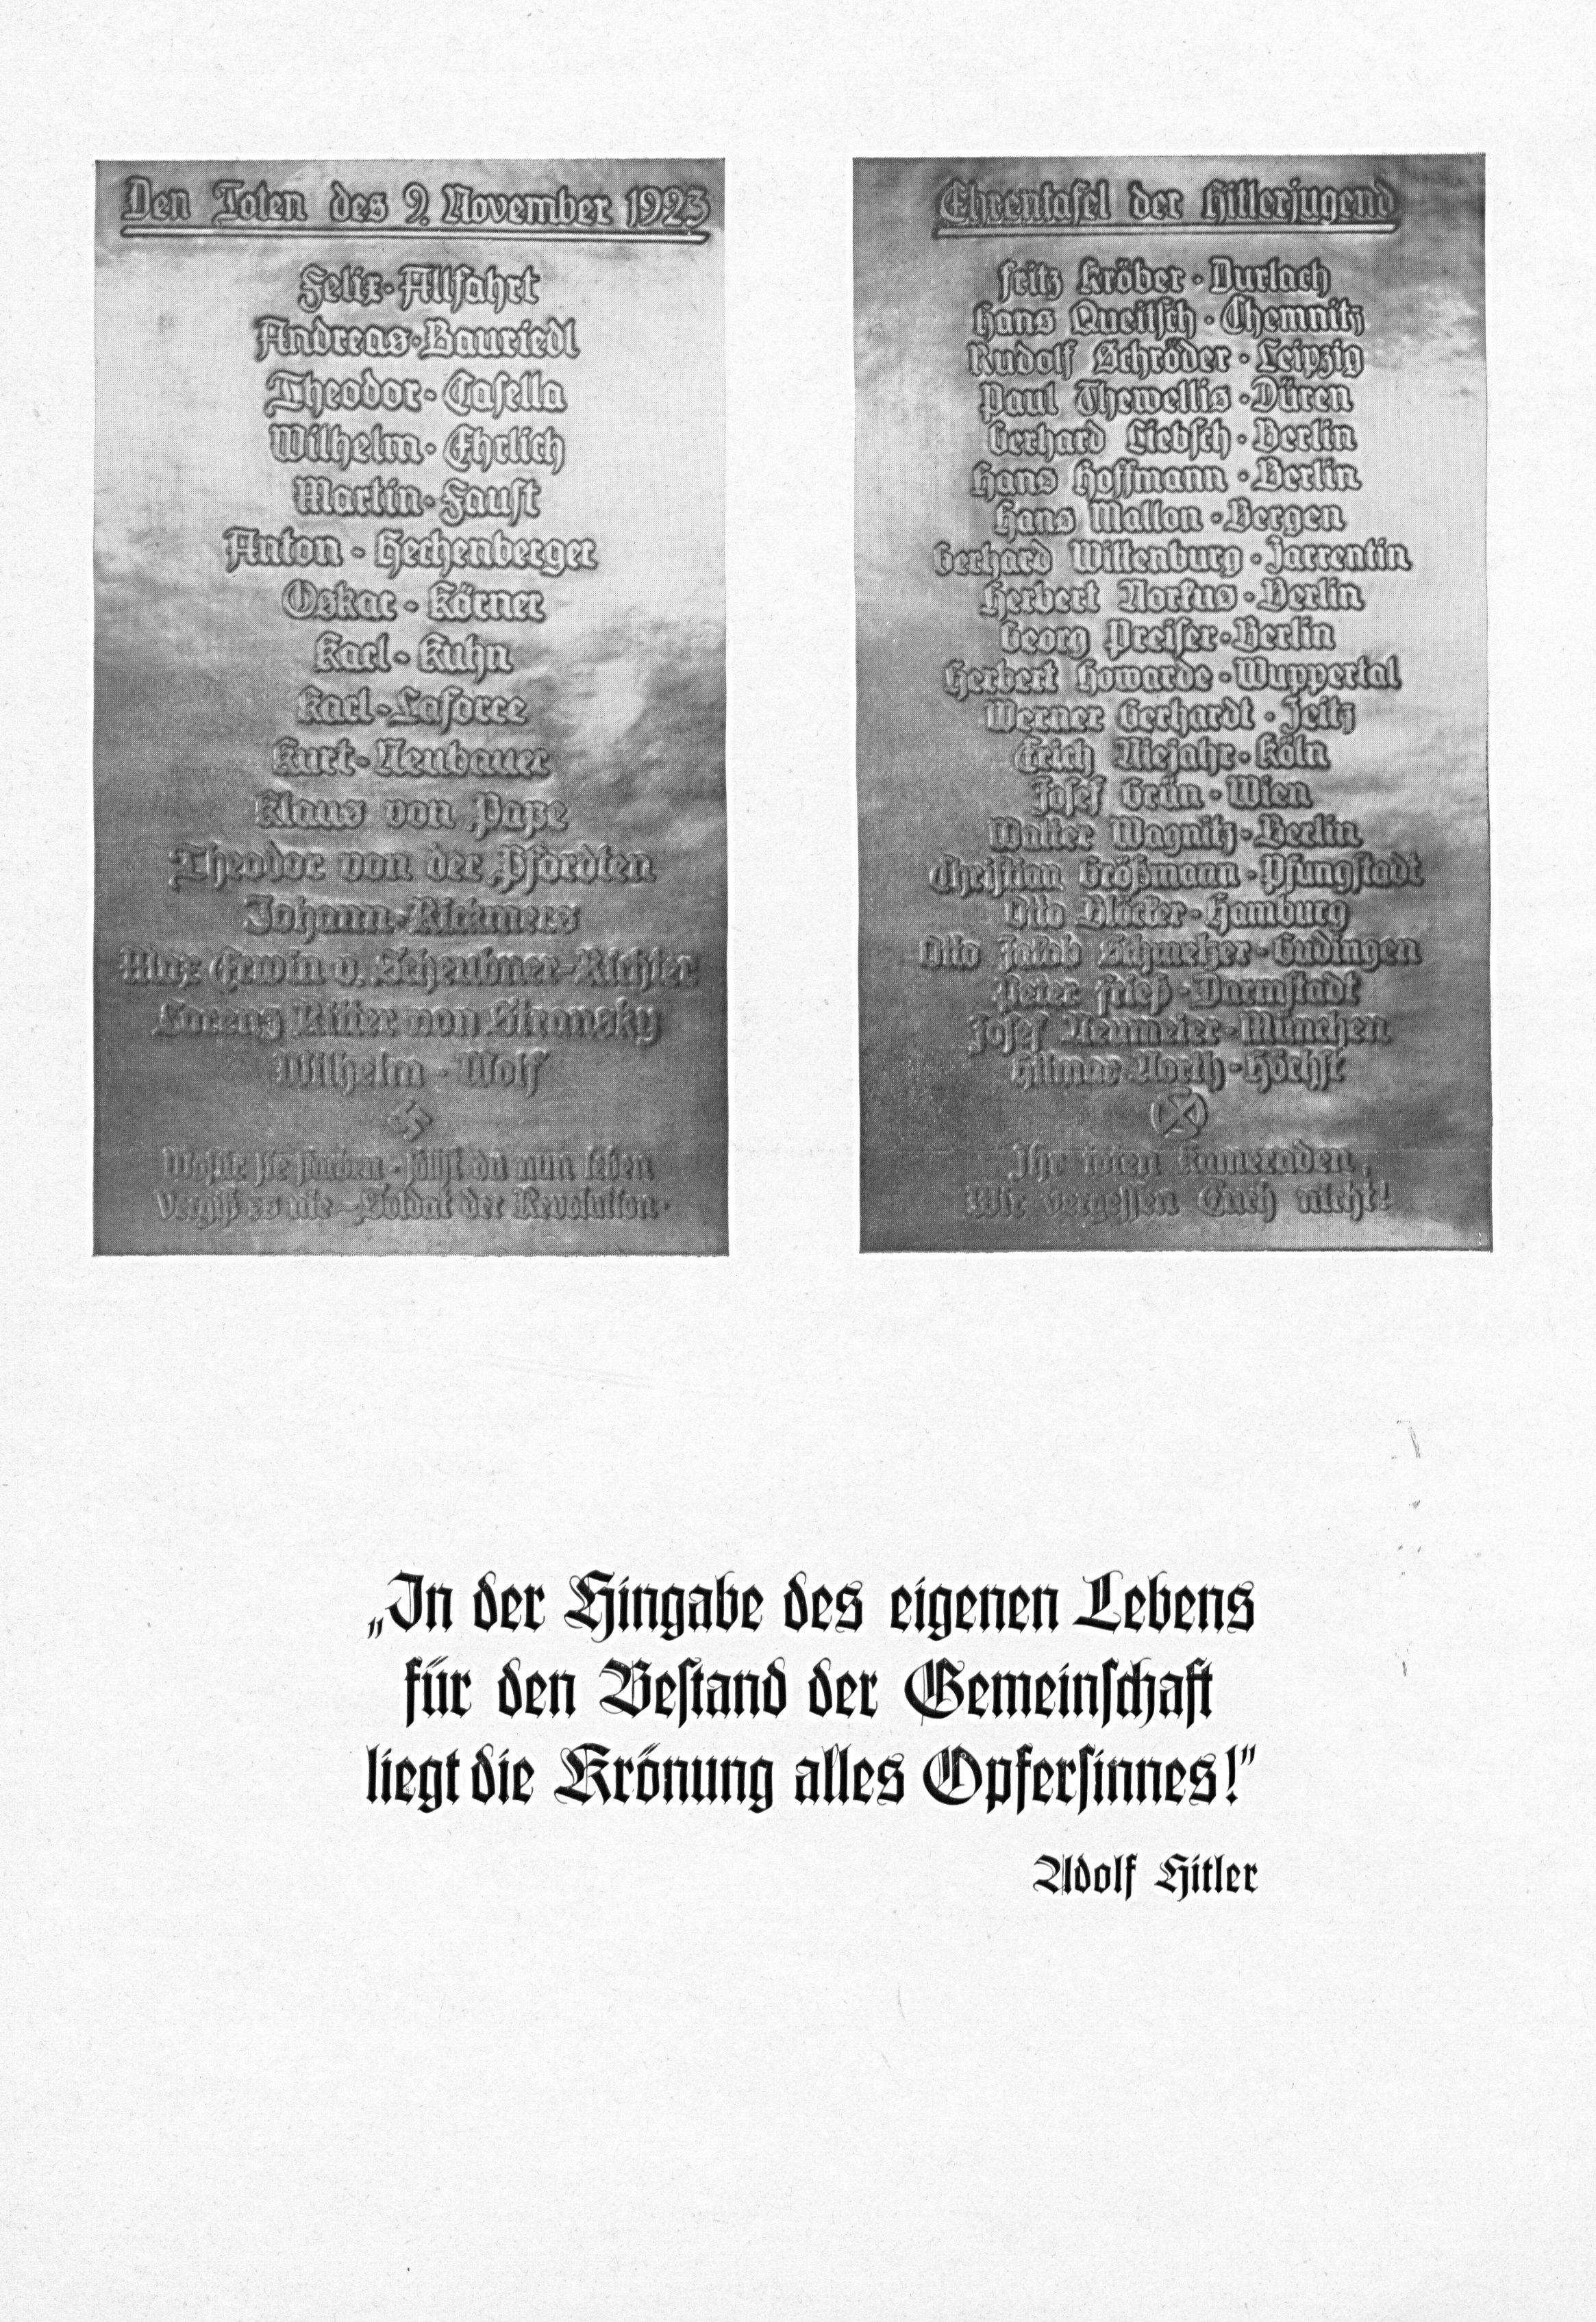 Den Toten des 9. November 1923
Felix · Allfahrt
Andreas · Bauriedl
Theodor · Casella
Wilhelm · Ehrlich
Martin · Faust
Anton · Hechenberger
Oskar · Körner
Karl · Kuhn
Karl · Laforce
Kurt · Neubauer
Klaus von Pape
Theodor von der Pfordten
Johann · Rickmers
Max Erwin v. Scheubner-Richter
Lorenz Ritter von Stransky
Wilhelm · Wolf
Wofür sie starben · sollst du nun leben
Vergiß es nie – Soldat der Revolution ·
Ehrentafel der Hitlerjugend
Fritz Kröber · Durlach
Hans Queitsch · Chemnitz
Rudolf Schröder · Leipzig
Paul Thewellis · Düren
Gerhard Liebsch · Berlin
Hans Hoffmann · Berlin
Hans Mallon · Bergen
Gerhard Wittenburg · Zarrentin
Herbert Norkus · Berlin
Georg Preiser · Berlin
Herbert Howarde · Wuppertal
Werner Gerhardt · Zeitz
Erich Niejahr · Köln
Josef Grün · Wien
Walter Wagnitz · Berlin
Christian Größmann · Pfungstadt
Otto Blöcker · Hamburg
Otto Jakob Schmelzer · Gudingen
Peter Frieß · Darmstadt
Josef Neumeier · München
Hilmar North · Höchst
Ihr toten Kameraden,
Wir vergessen Euch nicht!
„In der Hingabe des eigenen Lebens
für den Bestand der Gemeinschaft
liegt die Krönung alles Opfersinnes!"
Adolf Hitler